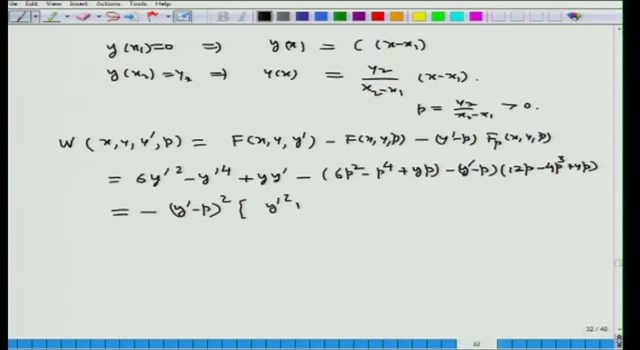 File Edit View Insert Actions Tools Help
y(x₁)=0 ⇒ y(x) = C (x-x₁)
y(x₂)=y₂ ⇒ y(x) = y₂/(x₂-x₁) (x-x₁).
p = y₂/(x₂-x₁) > 0.
W (x, y, y', p) = F(x, y, y') - F(x, y, p) - (y'-p) F_p(x, y, p)
= 6y'² - y'⁴ + yy' - (6p² - p⁴ + yp) - (y'-p)(12p - 4p³ + yp)
= - (y'-p)² { y'²,
32 / 40
32